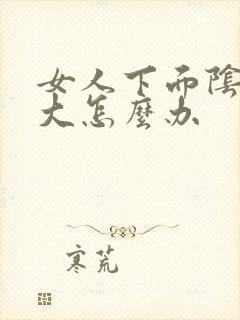 女人下而陰
大怎麼办
寒荒